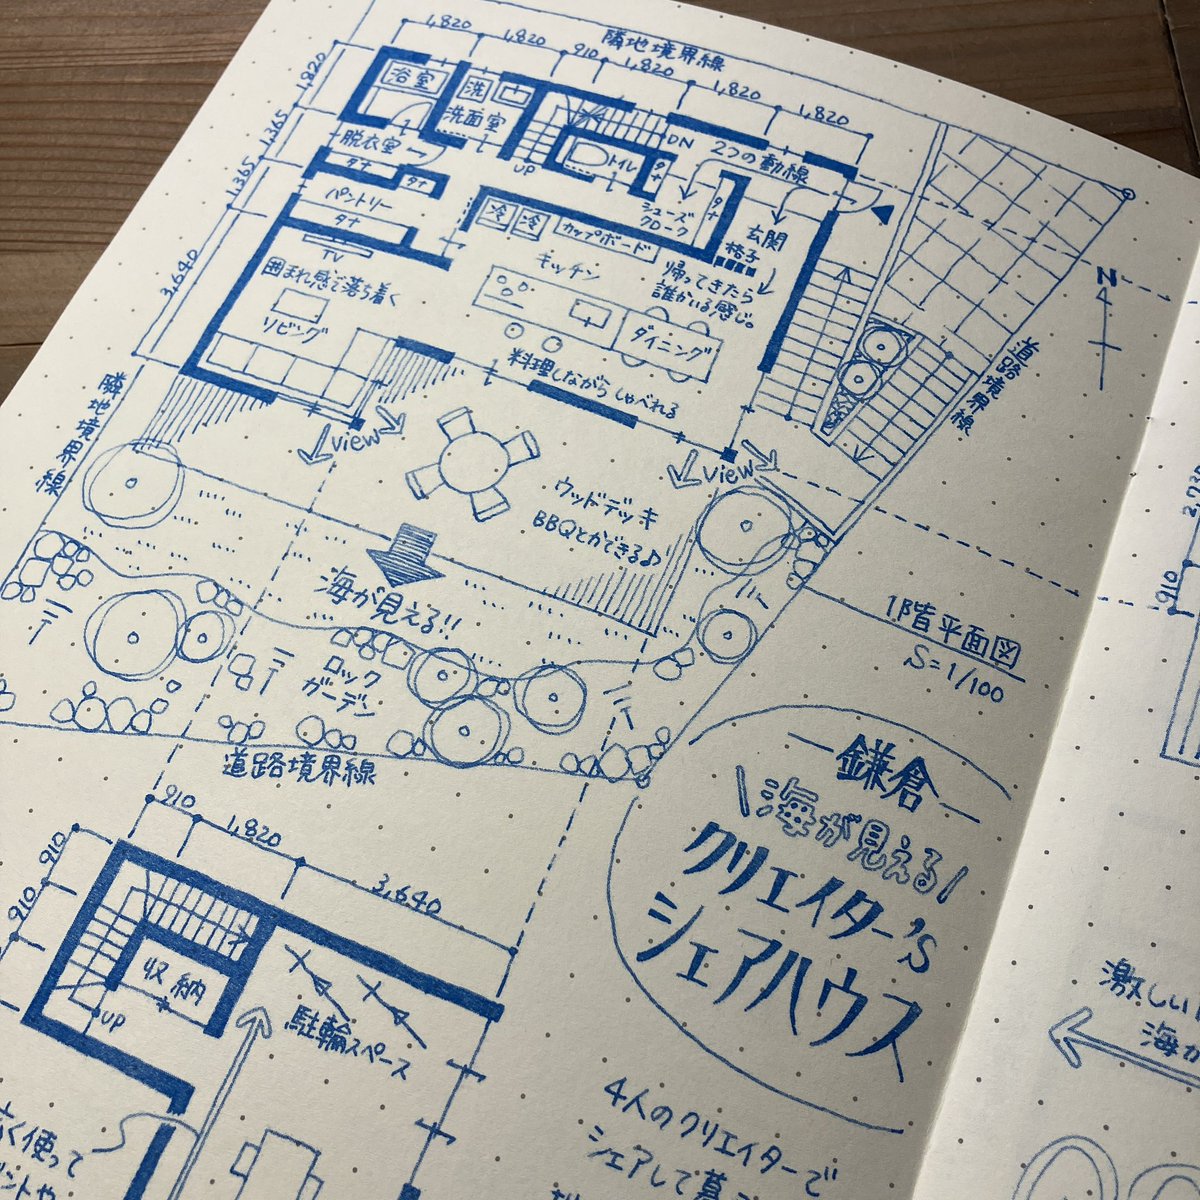 隣地境界線
1,820
1,820
910
1,820
1,820
1,820
1,820
1,365
1,365
3,640
浴室
洗
洗面室
脱衣室
タナ
タナ
パントリー
タナ
TV
囲まれ感で落ち着く
リビング
UP
DN
トイレ
タナ
2つの動線
シューズ
クローク
タナ
玄関
格子
帰ってきたら
誰かいる感じ。
冷
冷
カップボード
キッチン
ダイニング
料理しながらしゃべれる
N
道路境界線
隣地境界線
view
view
ウッドデッキ
BBQとかできる♪
海が見える!!
ロック
ガーデン
道路境界線
1階平面図
S=1/100
鎌倉
海が見える!
クリエイター's
シェアハウス
910
1,820
3,640
910
910
収納
UP
駐輪スペース
4人のクリエイターで
シェアして暮
く使って
910
激しい
海が